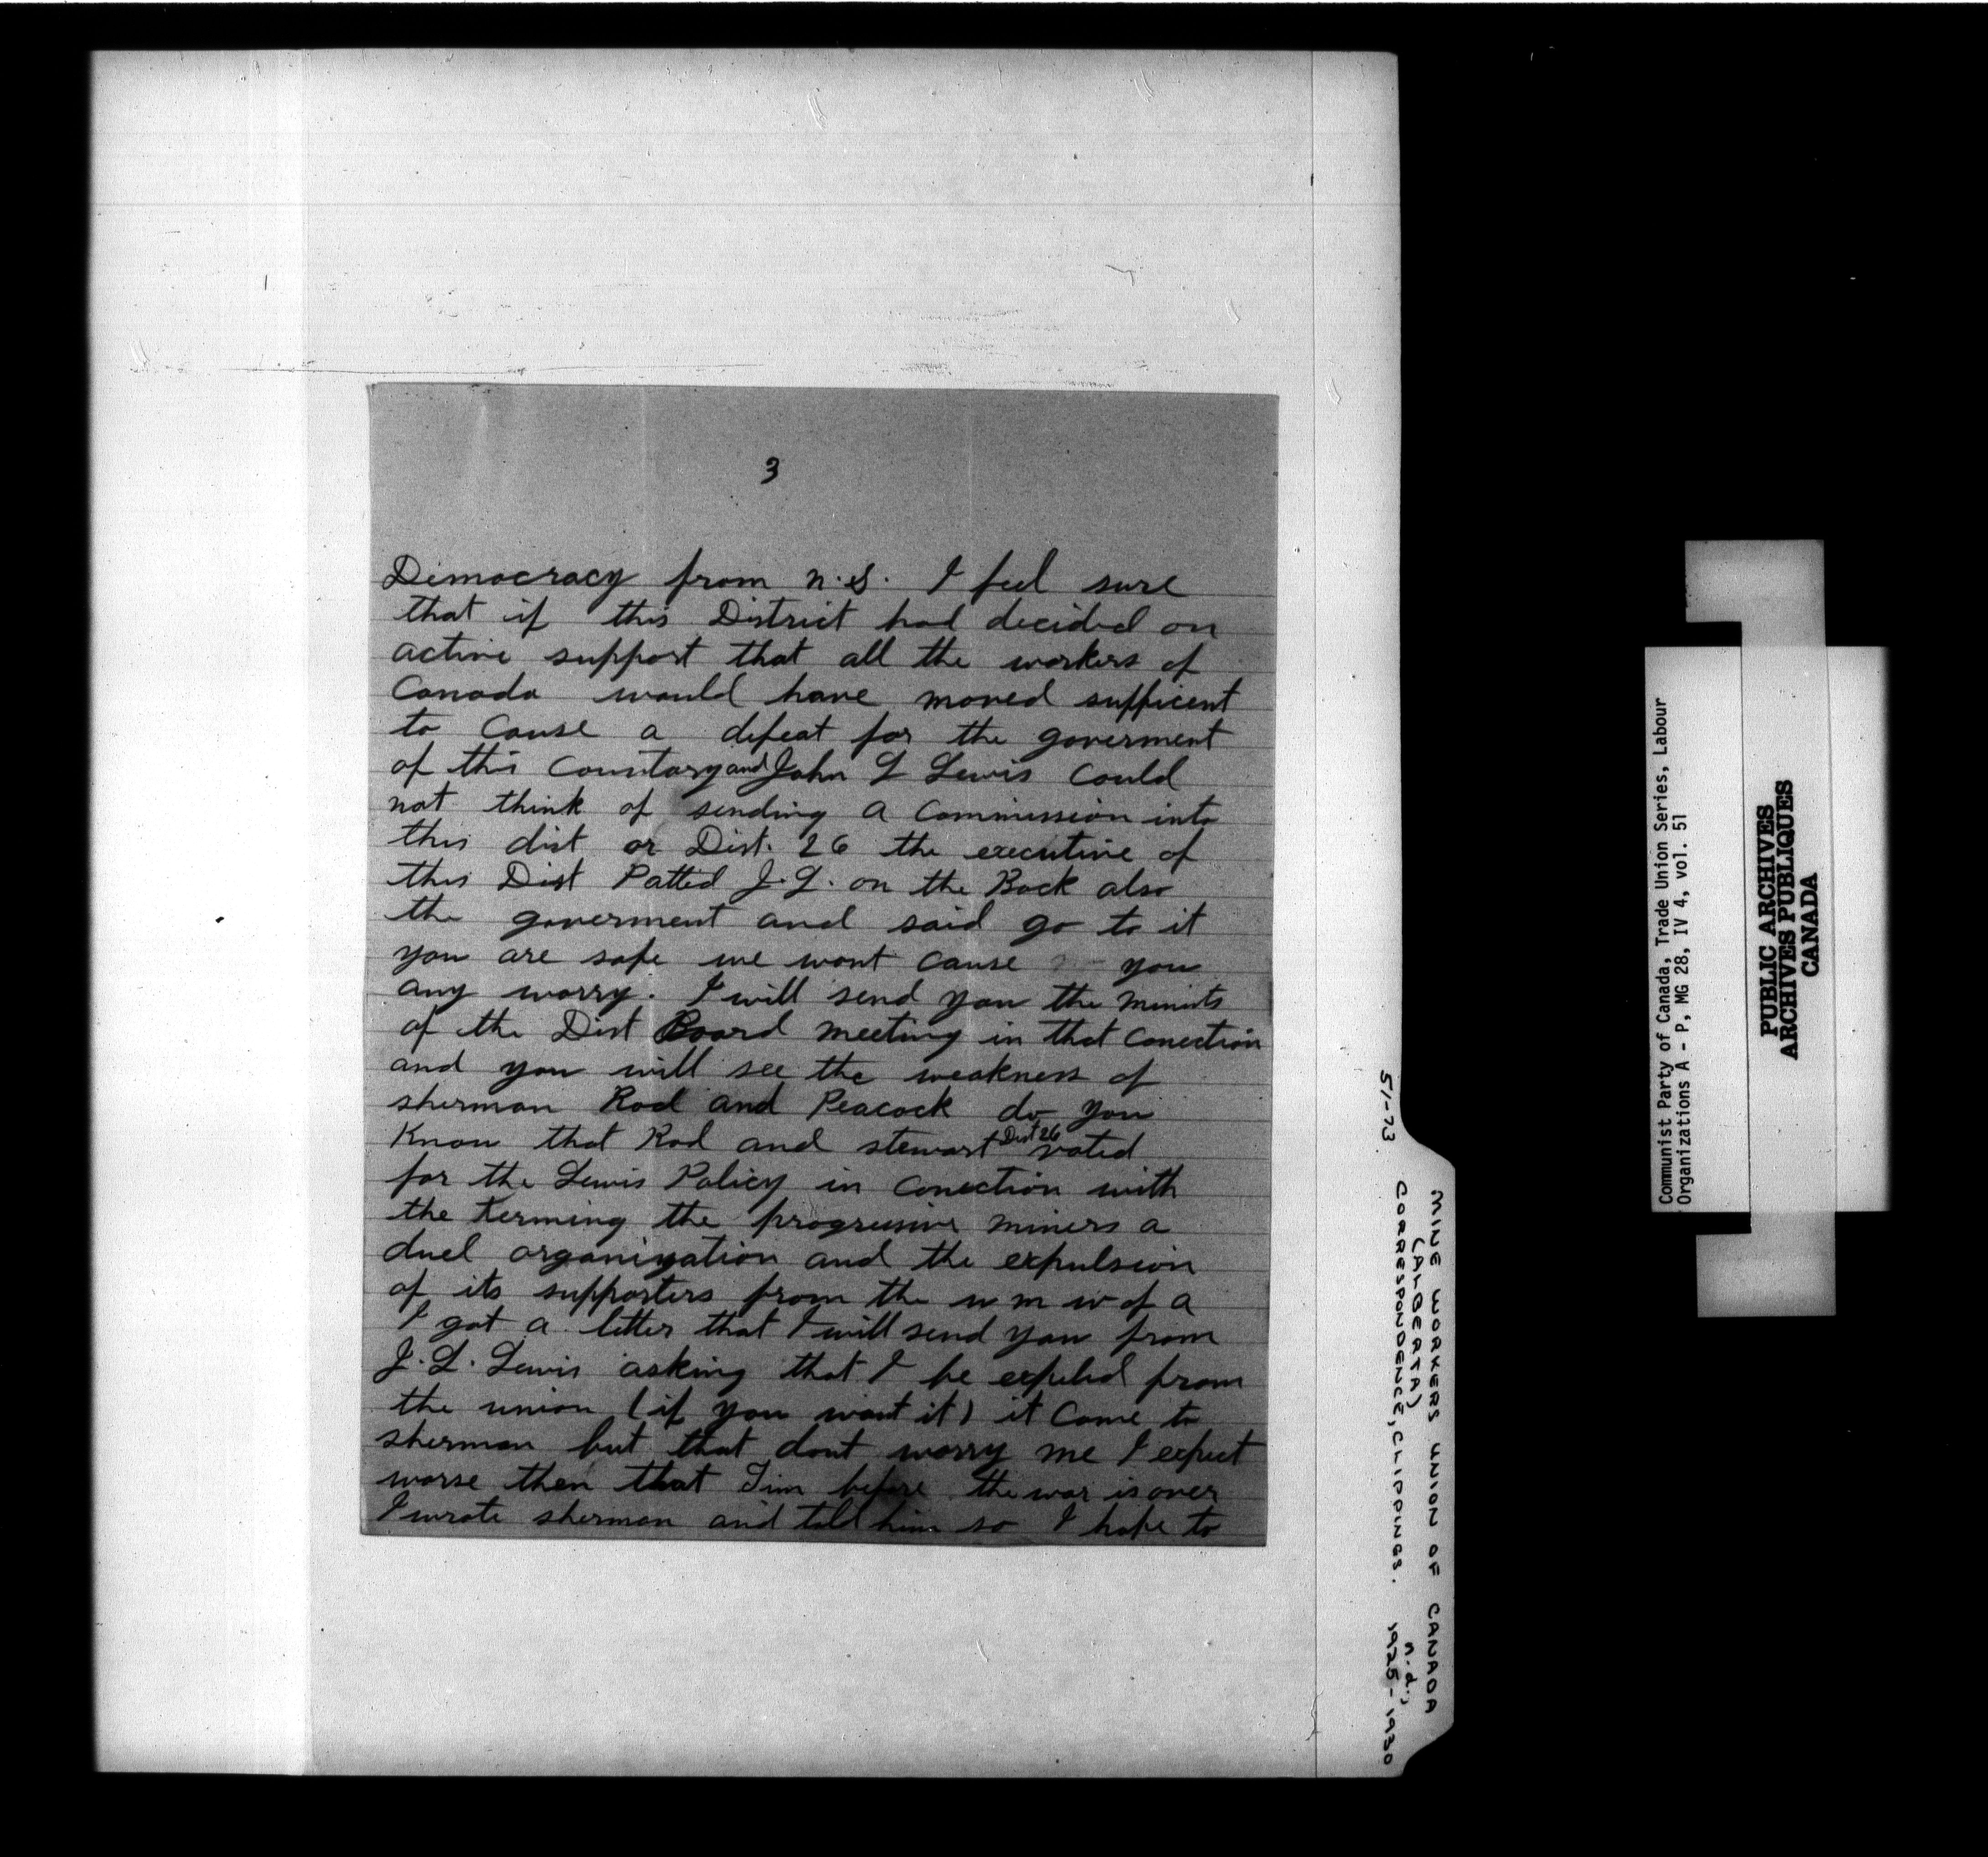 3
Democracy from N.S. I feel sure
that if this District had decided on
active support that all the workers of
Canada would have moved sufficent
to cause a defeat for the goverment
of this Country and John L Lewis could
not think of sending a commission into
this dist or Dist. 26 the executive of
this Dist Patted J.L. on the Back also
the goverment and said go to it
you are safe we wont cause you
any worry. I will send you the minits
of the Dist Board meeting in that conection
and you will see the weakness of
sherman Rod and Peacock do you
Know that Rod and stewart Dist 26 voted
for the Lewis Policy in conection with
the terming the progresive miners a
duel organization and the expulsion
of its supporters from the u m w of a
I got a letter that I will send you from
J.L. Lewis asking that I be expeled from
the union (if you want it) it came to
sherman but that dont worry me I expect
worse then that Tim before the war is over
I wrote sherman and told him so I hope to
51-73
MINE WORKERS UNION OF CANADA
(ALBERTA)
CORRESPONDENCE, CLIPPINGS. n.d.,
1925-1930
Communist Party of Canada, Trade Union Series, Labour
Organizations A - P, MG 28, IV 4, vol. 51
PUBLIC ARCHIVES
ARCHIVES PUBLIQUES
CANADA